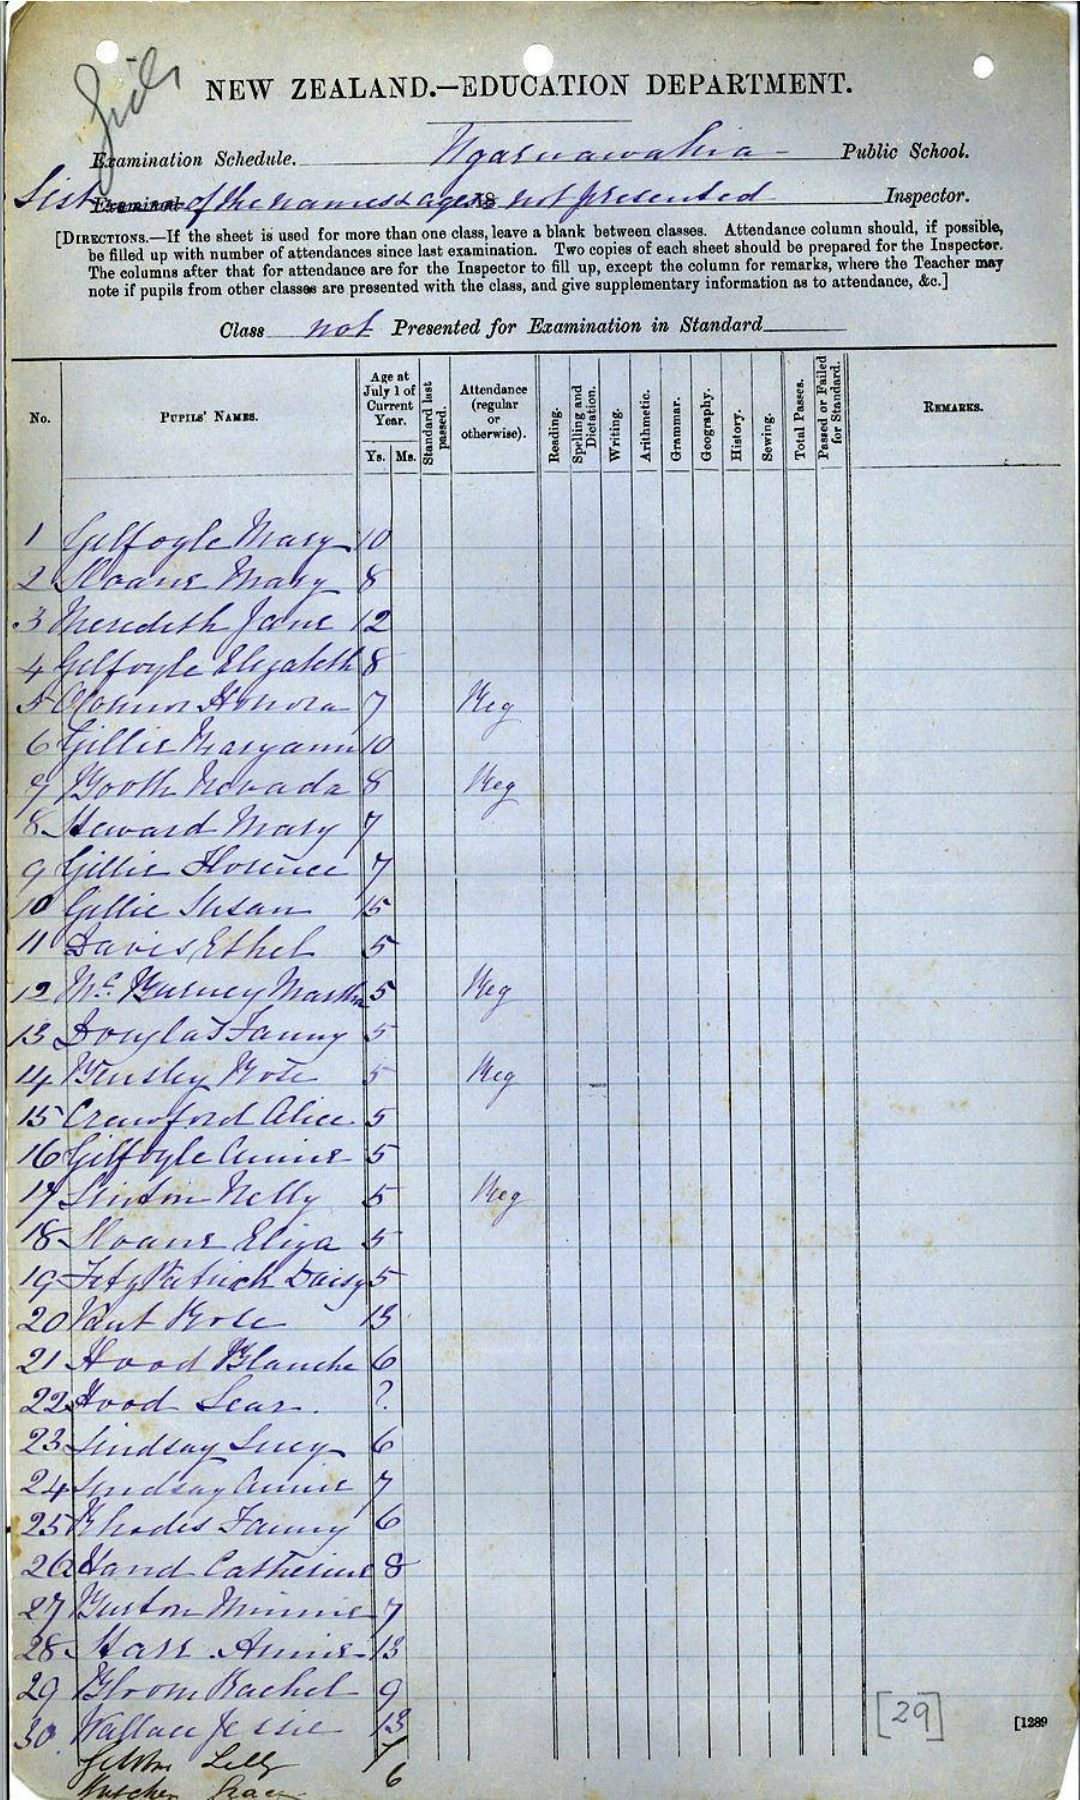 Girls
NEW ZEALAND.—EDUCATION DEPARTMENT.
Examination Schedule. Ngaruawahia Public School.
List of the names & ages not presented Inspector.
[DIRECTIONS.—If the sheet is used for more than one class, leave a blank between classes. Attendance column should, if possible,
be filled up with number of attendances since last examination. Two copies of each sheet should be prepared for the Inspector.
The columns after that for attendance are for the Inspector to fill up, except the column for remarks, where the Teacher may
note if pupils from other classes are presented with the class, and give supplementary information as to attendance, &c.]
Class not Presented for Examination in Standard
No. PUPILS' NAMES. Age at July 1 of Current Year. Ys. Ms. Standard last passed. Attendance (regular or otherwise). Reading. Spelling and Dictation. Writing. Arithmetic. Grammar. Geography. History. Sewing. Total Passes. Passed or Failed for Standard. REMARKS.
1 Gilfoyle Mary 10
2 Sloane Mary 8
3 Meredith Jane 12
4 Gilfoyle Elizabeth 8
5 OConnor Honora 7 Reg
6 Gillie Maryann 10
7 Booth Nevada 8 Reg
8 Steward Mary 7
9 Gillie Florence 7
10 Gillie Susan 15
11 Davis Ethel 5
12 Mc Burney Martha 5 Reg
13 Douglas Fanny 5
14 Bensley Rose 5 Reg
15 Crawford Alice 5
16 Gilfoyle Annie 5
17 Linton Nelly 5 Reg
18 Sloane Eliza 5
19 FitzPatrick Daisy 5
20 Vant Rose 13
21 Hood Blanche 6
22 Hood ?
23 Lindsay Lucy 6
24 Lindsay Annie 7
25 Rhodes Fanny 6
26 Hand Catherine 8
27 Burton Minnie 7
28 Starr Annie 13
29 Bloom Rachel 9
30 Wallace Jessie 13
Lilly 7
Grace 6
[29]
[1289